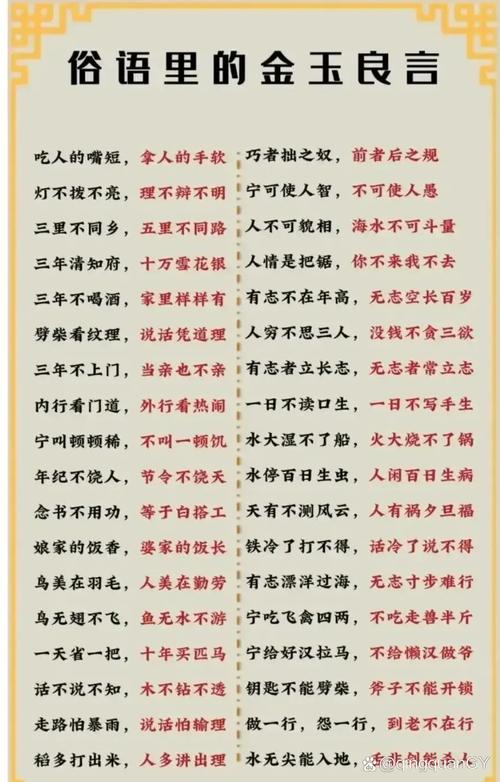 俗语里的金玉良言
吃人的嘴短，拿人的手软
灯不拨不亮，理不辩不明
三里不同乡，五里不同路
三年清知府，十万雪花银
三年不喝酒，家里样样有
劈柴看纹理，说话凭道理
三年不上门，当亲也不亲
内行看门道，外行看热闹
宁叫顿顿稀，不叫一顿饥
年纪不饶人，节令不饶天
念书不用功，等于白搭工
娘家的饭香，婆家的饭长
鸟美在羽毛，人美在勤劳
鸟无翅不飞，鱼无水不游
一天省一把，十年买匹马
话不说不知，木不钻不透
走路怕暴雨，说话怕输理
稻多打出米，人多讲出理
巧者拙之奴，前者后之规
宁可使人智，不可使人愚
人不可貌相，海水不可斗量
人情是把锯，你不来我不去
有志不在年高，无志空长百岁
人穷不思三人，没钱不贪三欲
有志者立长志，无志者常立志
一日不读口生，一日不写手生
水大湿不了船，火大烧不了锅
水停百日生虫，人闲百日生病
天有不测风云，人有祸夕旦福
铁冷了打不得，话冷了说不得
有志漂洋过海，无志寸步难行
宁吃飞禽四两，不吃走兽半斤
宁给好汉拉马，不给懒汉做爷
钥匙不能劈柴，斧子不能开锁
做一行，怨一行，到老不在行
水无尖能入地，舌非剑能杀人